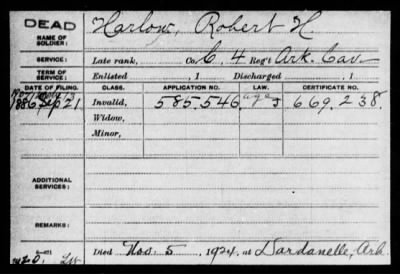 DEAD
NAME OF SOLDIER: Harlow, Robert H.
SERVICE: Late rank, Co. C. 4 Reg't Ark. Cav
TERM OF SERVICE: Enlisted , 1 Discharged , 1
DATE OF FILING. CLASS. APPLICATION NO. LAW. CERTIFICATE NO.
1886 Sep 21 Invalid, 585.546 age 669.238.
Widow,
Minor,
ADDITIONAL SERVICES:
REMARKS:
Died Nov. 5, 1924, at Dardanelle, Ark.